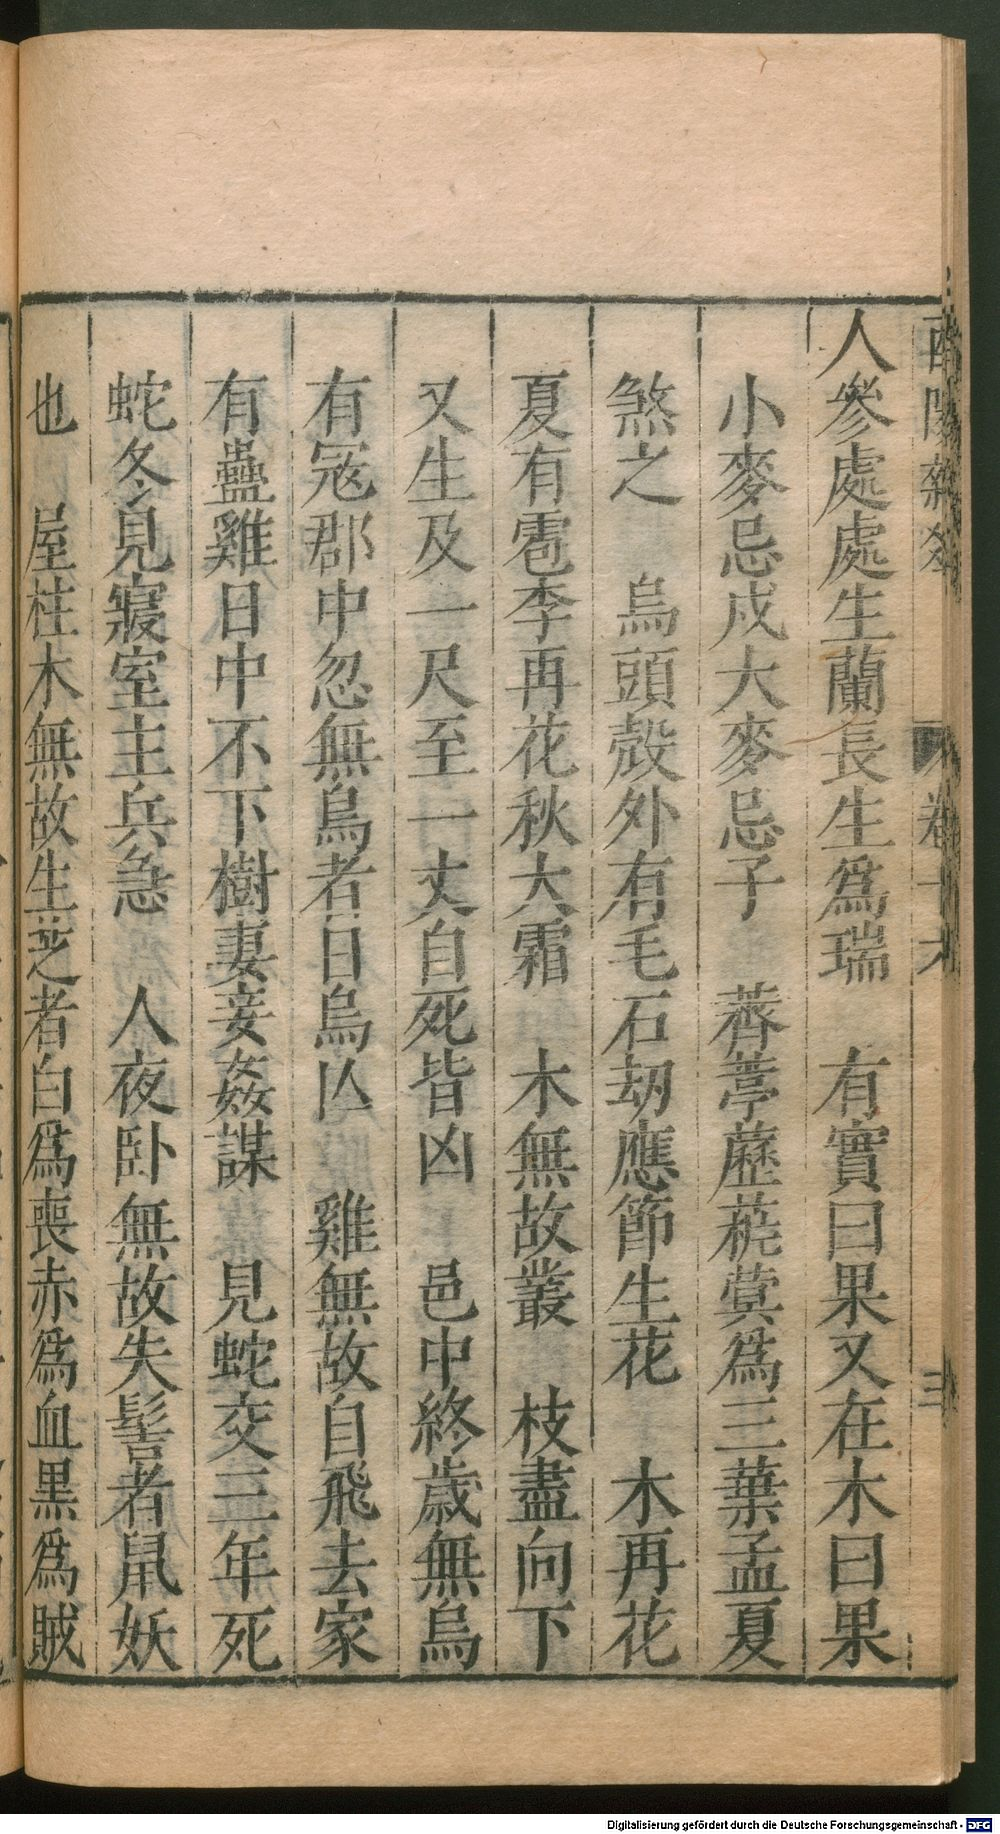 酉陽雜俎 卷十六 三
人參處處生蘭長生爲瑞 有實曰果又在木曰果
小麥忌戌大麥忌子 薺葶藶菥蓂爲三葉孟夏
煞之 烏頭殼外有毛石劫應節生花 木再花
夏有雹李再花秋大霜 木無故叢 枝盡向下
又生及一尺至一丈自死皆凶 邑中終歲無烏
有寇郡中忽無烏者日烏亾 雞無故自飛去家
有蠱雞日中不下樹妻妾姦謀 見蛇交三年死
蛇冬見寢室主兵急 人夜臥無故失髻者鼠妖
也 屋柱木無故生芝者白爲喪赤爲血黑爲賊
Digitalisierung gefördert durch die Deutsche Forschungsgemeinschaft - DFG